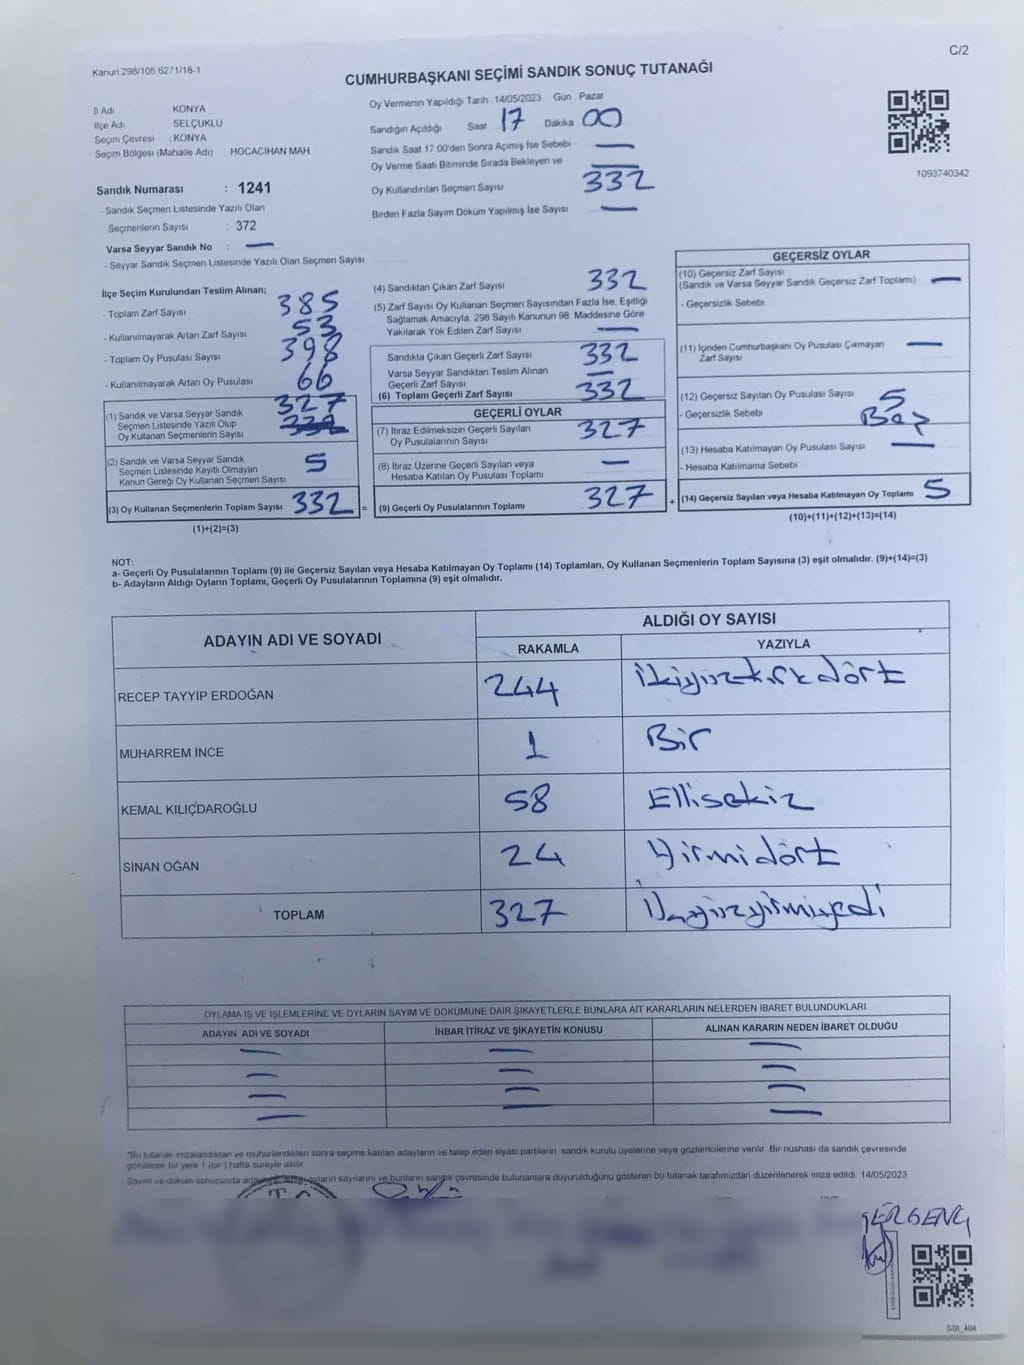 C/2
Kanun:298/105 6271/18-1
CUMHURBAŞKANI SEÇİMİ SANDIK SONUÇ TUTANAĞI
İl Adı KONYA
İlçe Adı SELÇUKLU
Seçim Çevresi : KONYA
Seçim Bölgesi (Mahalle Adı) HOCACİHAN MAH
Oy Vermenin Yapıldığı Tarih : 14/05/2023 Gün : Pazar
Sandığın Açıldığı Saat 17 Dakika 00
Sandık Saat 17:00'den Sonra Açımış İse Sebebi —
Oy Verme Saati Bitiminde Sırada Bekleyen ve
Oy Kullandırılan Seçmen Sayısı 332
Birden Fazla Sayım Döküm Yapılmış İse Sayısı —
1093740342
Sandık Numarası : 1241
- Sandık Seçmen Listesinde Yazılı Olan
Seçmenlerin Sayısı : 372
Varsa Seyyar Sandık No : —
- Seyyar Sandık Seçmen Listesinde Yazılı Olan Seçmen Sayısı:
İlçe Seçim Kurulundan Teslim Alınan;
- Toplam Zarf Sayısı 385
- Kullanılmayarak Artan Zarf Sayısı 53
- Toplam Oy Pusulası Sayısı 398
- Kullanılmayarak Artan Oy Pusulası 66
(1) Sandık ve Varsa Seyyar Sandık
Seçmen Listesinde Yazılı Olup
Oy Kullanan Seçmenlerin Sayısı 327
(2) Sandık ve Varsa Seyyar Sandık
Seçmen Listesinde Kayıtlı Olmayan
Kanun Gereği Oy Kullanan Seçmen Sayısı 5
(3) Oy Kullanan Seçmenlerin Toplam Sayısı 332 =
(1)+(2)=(3)
(4) Sandıktan Çıkan Zarf Sayısı 332
(5) Zarf Sayısı Oy Kullanan Seçmen Sayısından Fazla İse, Eşitliği
Sağlamak Amacıyla, 298 Sayılı Kanunun 98. Maddesine Göre
Yakılarak Yok Edilen Zarf Sayısı —
Sandıkta Çıkan Geçerli Zarf Sayısı 332
Varsa Seyyar Sandıktan Teslim Alınan
Geçerli Zarf Sayısı —
(6) Toplam Geçerli Zarf Sayısı 332
GEÇERLİ OYLAR
(7) İtiraz Edilmeksizin Geçerli Sayılan
Oy Pusulalarının Sayısı 327
(8) İtiraz Üzerine Geçerli Sayılan veya
Hesaba Katılan Oy Pusulası Toplamı —
(9) Geçerli Oy Pusulalarının Toplamı 327 +
GEÇERSİZ OYLAR
(10) Geçersiz Zarf Sayısı
(Sandık ve Varsa Seyyar Sandık Geçersiz Zarf Toplamı) —
- Geçersizlik Sebebi
(11) İçinden Cumhurbaşkanı Oy Pusulası Çıkmayan
Zarf Sayısı —
(12) Geçersiz Sayılan Oy Pusulası Sayısı 5
- Geçersizlik Sebebi Boş
(13) Hesaba Katılmayan Oy Pusulası Sayısı —
- Hesaba Katılmama Sebebi
(14) Geçersiz Sayılan veya Hesaba Katılmayan Oy Toplamı 5
(10)+(11)+(12)+(13)=(14)
NOT:
a- Geçerli Oy Pusulalarının Toplamı (9) ile Geçersiz Sayılan veya Hesaba Katılmayan Oy Toplamı (14) Toplamları, Oy Kullanan Seçmenlerin Toplam Sayısına (3) eşit olmalıdır. (9)+(14)=(3)
b- Adayların Aldığı Oyların Toplamı, Geçerli Oy Pusulalarının Toplamına (9) eşit olmalıdır.
ADAYIN ADI VE SOYADI ALDIĞI OY SAYISI
RAKAMLA YAZIYLA
RECEP TAYYİP ERDOĞAN 244 ikiyüzkırkdört
MUHARREM İNCE 1 Bir
KEMAL KILIÇDAROĞLU 58 Ellisekiz
SİNAN OĞAN 24 Yirmidört
TOPLAM 327 Üçyüzyirmiyedi
OYLAMA İŞ VE İŞLEMLERİNE VE OYLARIN SAYIM VE DÖKÜMÜNE DAİR ŞİKAYETLERLE BUNLARA AİT KARARLARIN NELERDEN İBARET BULUNDUKLARI
ADAYIN ADI VE SOYADI İHBAR İTİRAZ VE ŞİKAYETİN KONUSU ALINAN KARARIN NEDEN İBARET OLDUĞU
— — —
— — —
— — —
— — —
*Bu tutanak imzalandıktan ve mühürlendikten sonra seçime katılan adayların ve talep eden siyasi partilerin sandık kurulu üyelerine veya gözlemcilerine verilir. Bir nüshası da sandık çevresinde
görülecek bir yere 1 (bir) hafta süreyle asılır.
Sayım ve döküm sonucunda oyların sayılarını ve bunların sandık çevresinde bulunanlara duyurulduğunu gösteren bu tutanak tarafımızdan düzenlenerek imza edildi. 14/05/2023
SSI_404